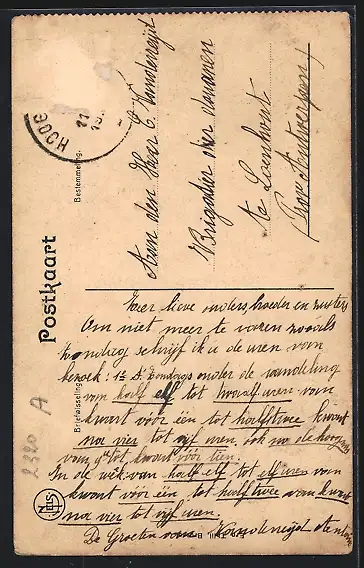 HOOG
11
Postkaart
Bestemmeling.
Briefwisseling
Aan den Heer C. Vandeneijd
Brigadier der douanen
te Loenhout
Prov. Antwerpen
Zeer lieve ouders, broeder en zusters
Om niet meer te varen zooals
zondag schrijf ik u de uren van
bezoek: 1e Zondags onder de wandeling
van half elf tot twaalf uren van
kwart vóór één tot halftwee kwart
na vier tot vijf uren, ook na de hoogmis
van tot kwart vóór tien.
In de week van half elf tot elf uren van
kwart vóór één, tot halftwee van kwart
na vier tot vijf uren.
De Groeten van Vandeneijd Antoon
2320 A